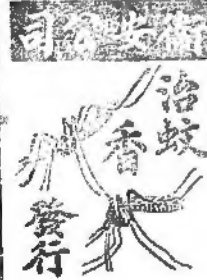 衛安公司
治蚊
香
發行